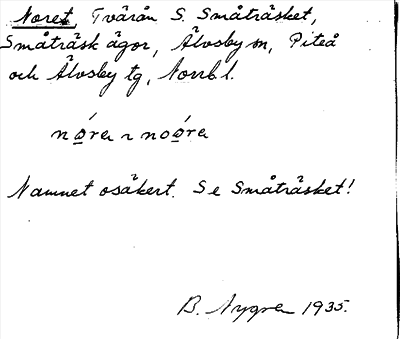 Noret, Tvärån S. Småträsket,
Småträsk ägor, Älvsby sn, Piteå
och Älvsby tg, Norrb l.
Namnet osäkert. Se Småträsket!
B. Nygren 1935.